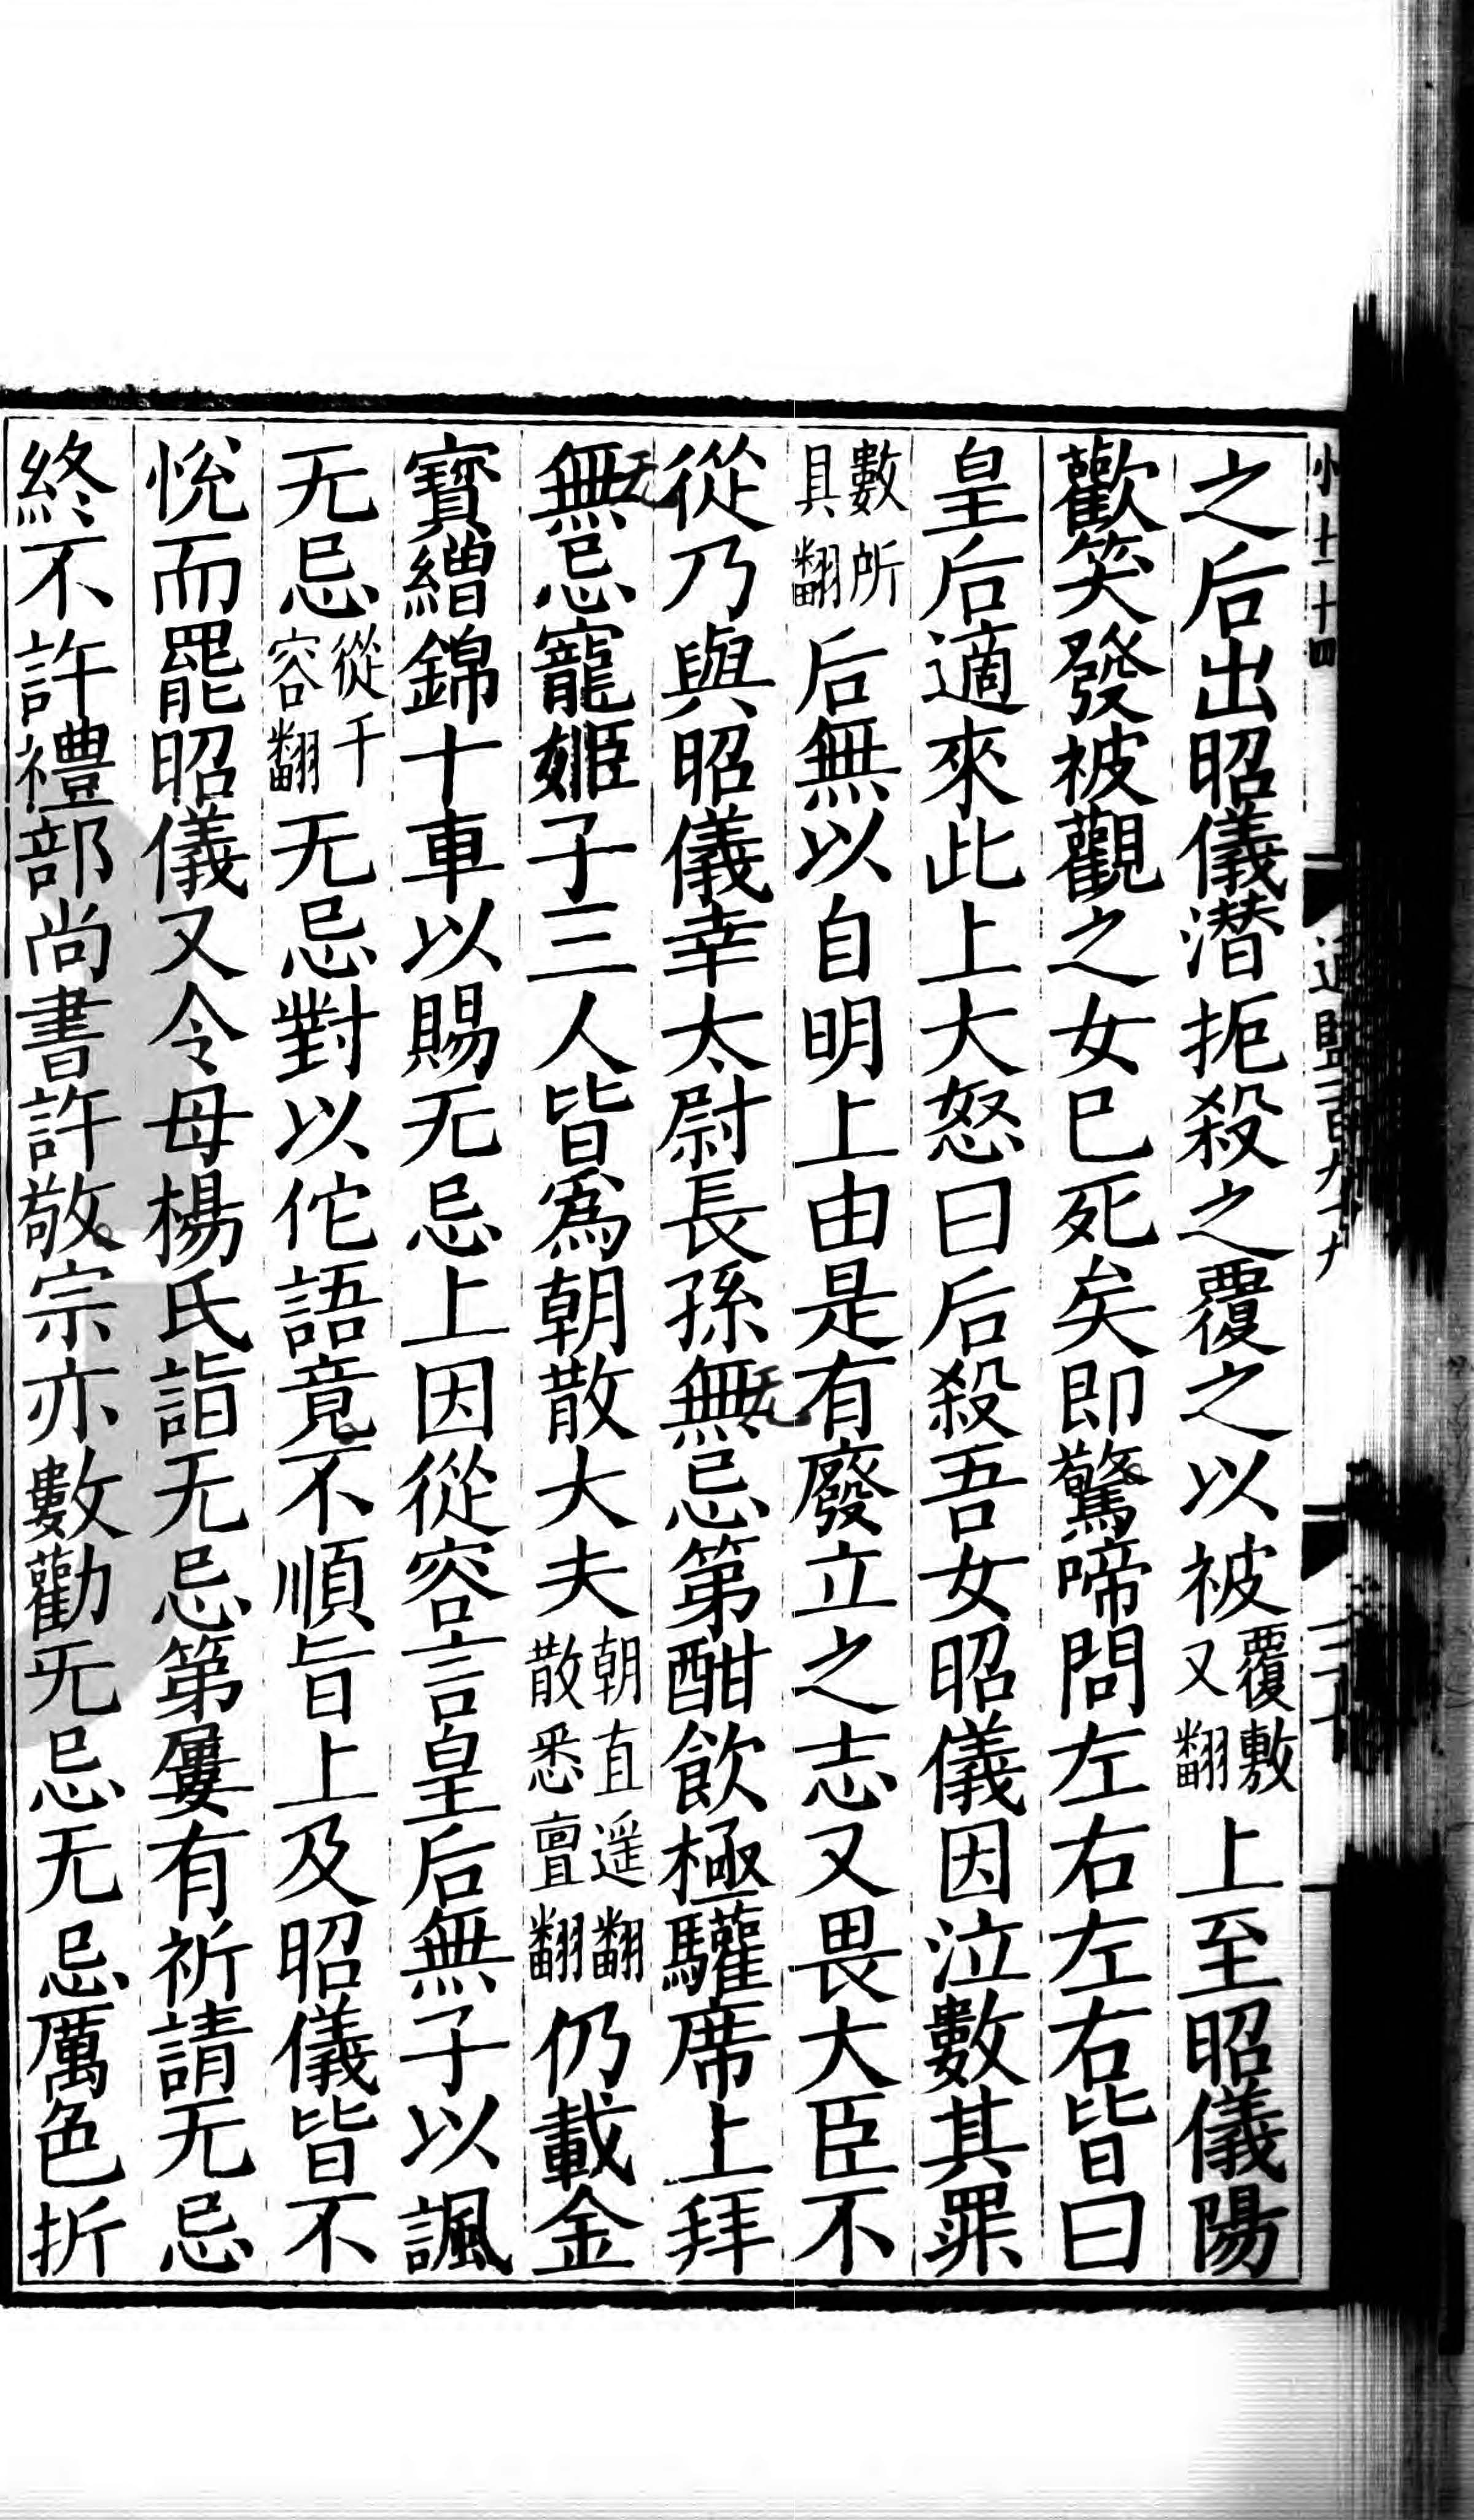 之后出昭儀潛扼殺之覆之以被覆敷又翻上至昭儀陽
歡笑發被觀之女已死矣即驚啼問左右左右皆曰
皇后適來此上大怒曰后殺吾女昭儀因泣數其罪
數所具翻后無以自明上由是有廢立之志又畏大臣不
從乃與昭儀幸太尉長孫無忌第酣飲極驩席上拜
無忌寵姬子三人皆爲朝散大夫朝直遥翻散悉亶翻仍載金
寶繒錦十車以賜无忌上因從容言皇后無子以諷
无忌從千容翻无忌對以佗語竟不順旨上及昭儀皆不
悅而罷昭儀又令母楊氏詣无忌第屢有祈請无忌
終不許禮部尚書許敬宗亦數勸无忌无忌厲色折